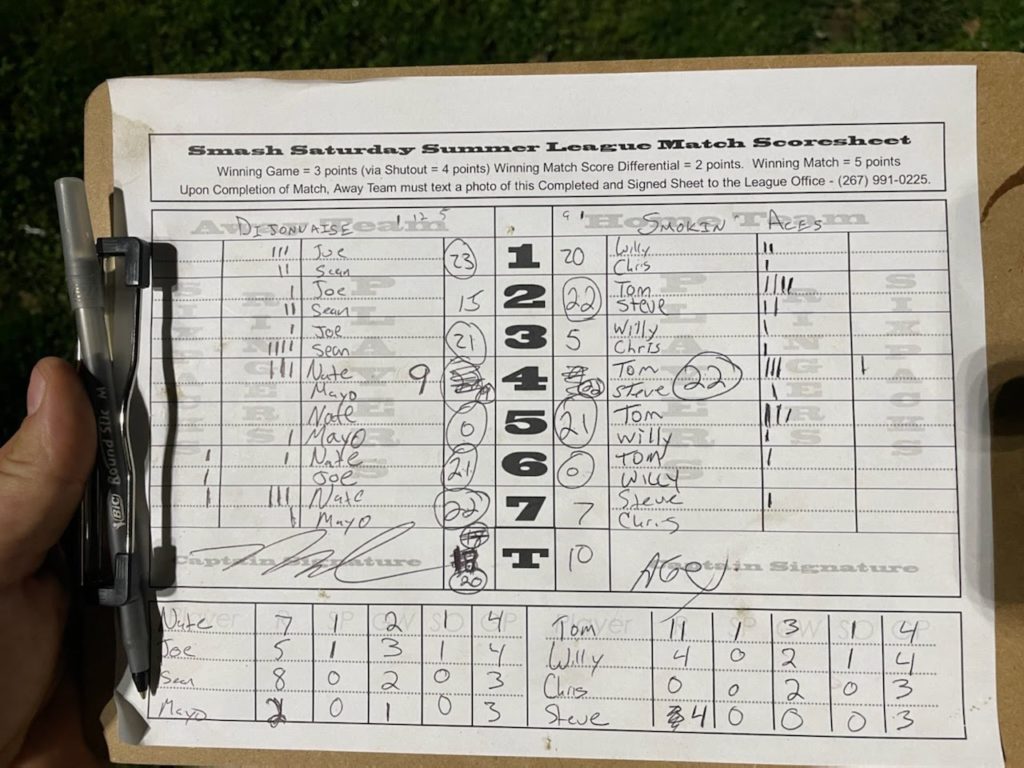 Smash Saturday Summer League Match Scoresheet
Winning Game = 3 points (via Shutout = 4 points) Winning Match Score Differential = 2 points. Winning Match = 5 points
Upon Completion of Match, Away Team must text a photo of this Completed and Signed Sheet to the League Office - (267) 991-0225.
Away Team DIJONNAISE 1 12 5 9 1 Home Team SMOKIN' ACES
III Joe 23 1 20 Willy II
II Sean Chris I
I Joe 15 2 22 Tom IIII
II Sean Steve II
I Joe 21 3 5 Willy I
IIII Sean Chris I
III Nate 9 4 22 Tom III I
Mayo Steve I
Nate 0 5 21 Tom
I Mayo Willy I
I I Nate 21 6 0 Tom I
I Joe Willy
I III Nate 22 7 7 Steve I
I Mayo Chris
Captain Signature 20 T 10 Captain Signature
PLAYERS
RINGERS
SIXPACKS
Player R SP GW SO GP Player R SP GW SO GP
Nate 7 1 2 1 4 Tom 11 1 3 1 4
Joe 5 1 3 1 4 Willy 4 0 2 1 4
Sean 8 0 2 0 3 Chris 0 0 2 0 3
Mayo 2 0 1 0 3 Steve 4 0 0 0 3
BIC Round Stic M